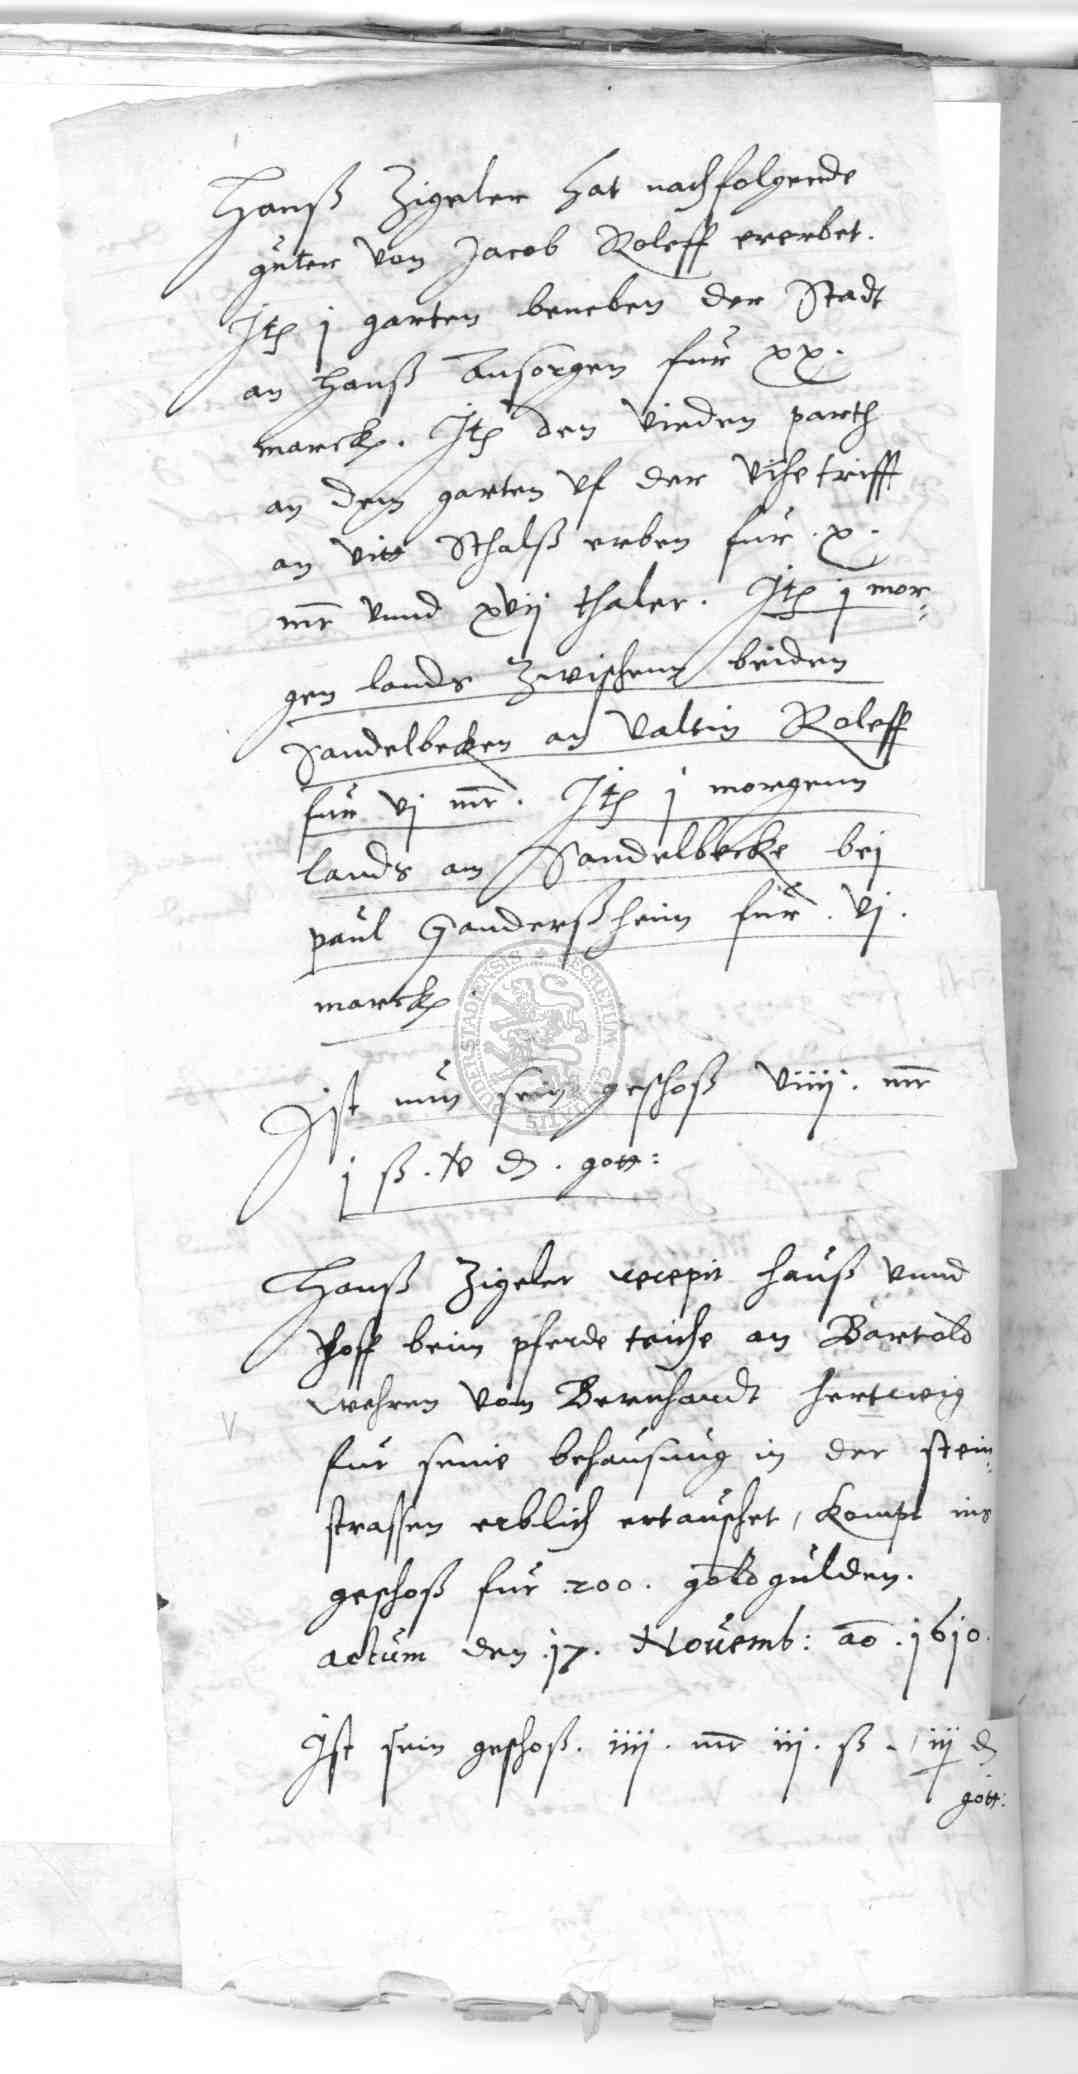 Hanß Zigeler hat nachfolgende
güter von Jacob Roleff ererbet.
Itz j garten beneben der Stadt
an Hanß Ansorgen für xx.
marck. Itz den vierden parth
an dem garten vf der Vihe trifft
an Vitt Schalß erben für . x .
mr vnnd xvij thaler. Itz j mor-
gen lands zwischenn beiden
Sandelbecken an Valtin Roleff
für vj mr. Itz j morgenn
lands am Sandelbecke bej
paul Ganderßheim für . vj .
marck
Ist nun sein geschoß viiij . mr
j ß . v ₰ . gott:
Hanß Zigeler recepit hauß vnnd
hoff beim pferde teiche an Bartold
wehren von Bernhardt hertwig
für seine behausung in der stein-
strassen erblich ertauschet, kompt ins
geschoß für .200. goldgülden.
actum den .17. Novemb: ao .1610.
Ist sein geschoß . iiij . mr iij . ß . iij ₰
gött:
DUDERSTADENSIS SECRETUM